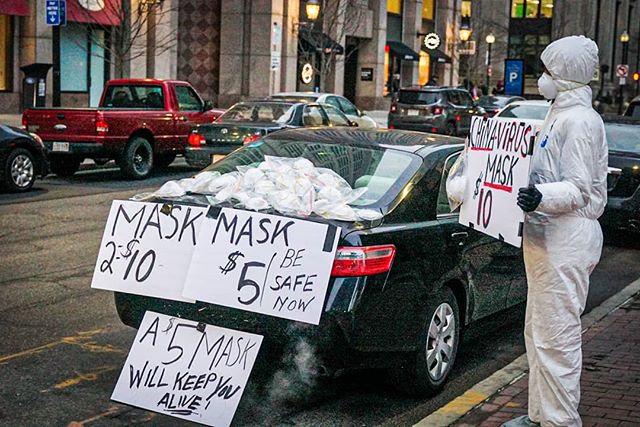 MASK
2-$10-
MASK
$5/BE
SAFE
NOW
A $5 MASK
WILL KEEP YOU
ALIVE!
CORONAVIRUS
MASK
$10
P